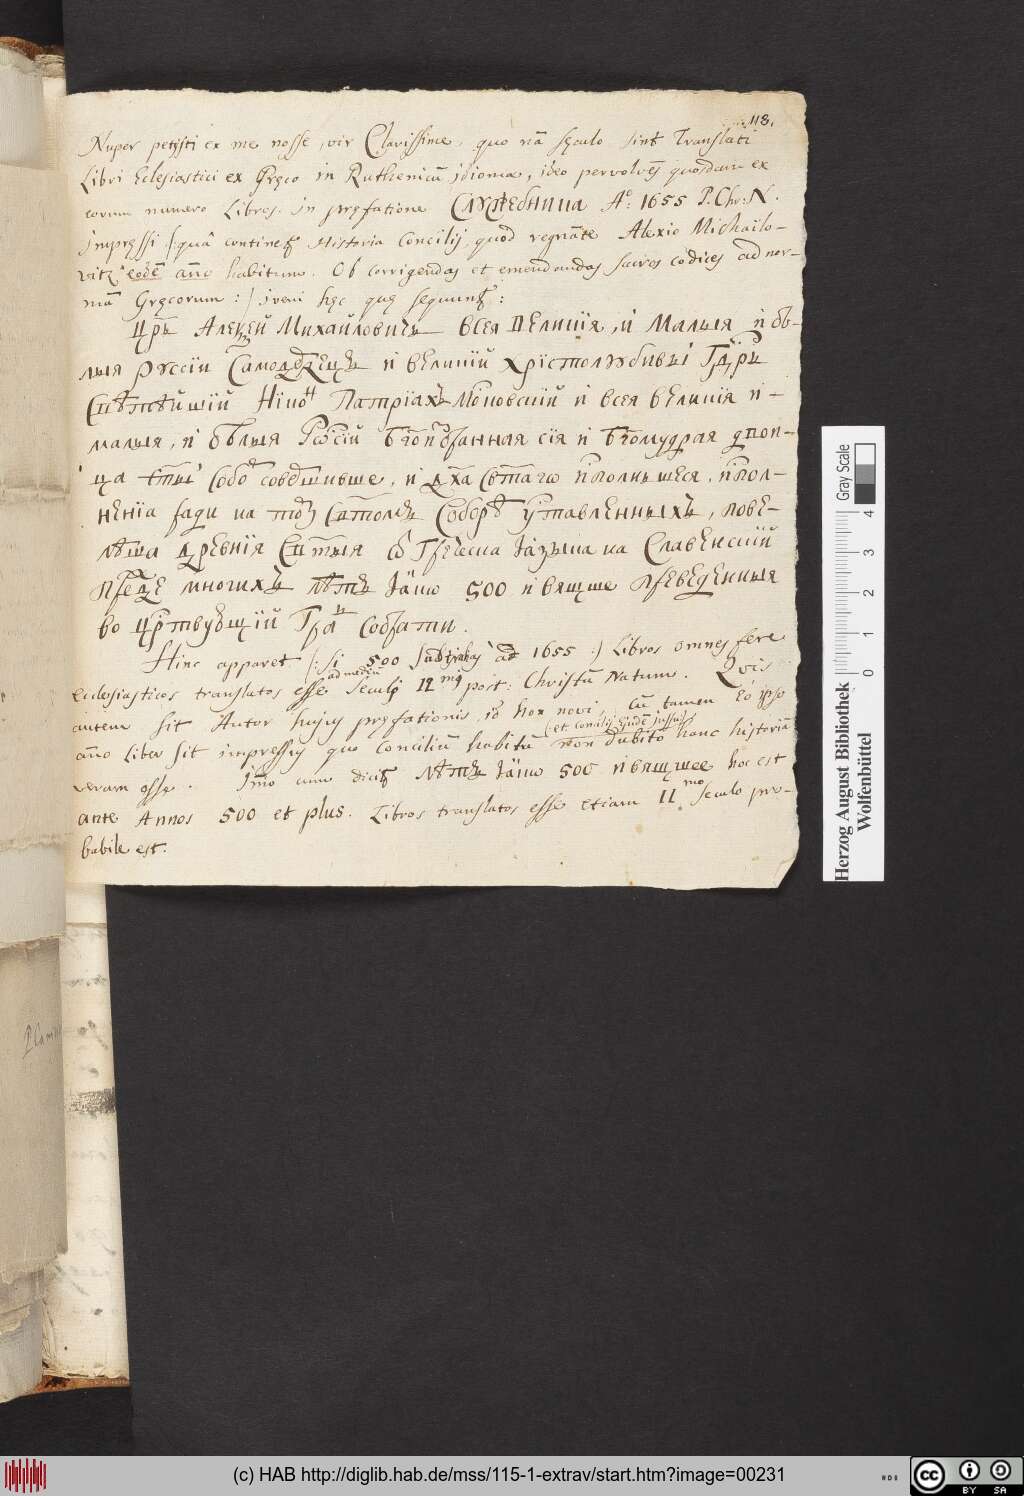 118.
Nuper petijsti ex me nosse, vir Clarissime, quo nā sęculo sint Translati
Libri Eclesiastici ex Gręco in Ruthenicū jdioma, ideo pervolvęs quosdam ex
eorum numero Libros. in pręfatione Служебника Aº: 1655 P. Chr: N.
jmpręssi |: quâ continet Historia Concilij, quod regnāte Alexio Michailo-
vitz eodē año habitum. Ob corrigendos et emendandos sacros codices ad nor-
mā Gręcorum :| jveni hęc quę sequunt:
Црь Алеѯей Михайловичь всея великия, и малыя и бѣ-
лыя руссіи Самодержецъ и великий хрістолюбивый Гдрь
Свѣтѣйшій Нікон Патріахъ Московскій и всея великія и
малыя, и бѣлыя Росіи
ца собо совѣтшивше, и дха исполньшеся, исполн-
ненія ради на том Соборѣ уставленныхъ, повѣ-
лѣша древнія Стыя ѿ Греческа Іазыка на Славенскій
преже многихъ лѣтъ Іако 500 и вящше преведенныя
во црствующій Град собрати.
Hinc apparet |: si 500 subtrahas ad 1655 :| Libros omnes fere
ad mediū
ecclesiasticos translatos esse seculj 12mj post: Christū Natum. Qvis
autem sit Autor hujus pręfationis, id non novi, cū tamen eo ipso
(et Concilij Ejusdē jussu)
año Liber sit impressus quo Conciliū habitū non dubito hanc historiā
veram esse. Imo cum dicit Лѣтъ Іако 500 и вящшее hoc est
ante Annos 500 et plus. Libros translatos esse etiam 11.mo seculo pro-
babile est.
Herzog August Bibliothek
Wolfenbüttel
Gray Scale
0 1 2 3 4
(c) HAB http://diglib.hab.de/mss/115-1-extrav/start.htm?image=00231
cc BY SA